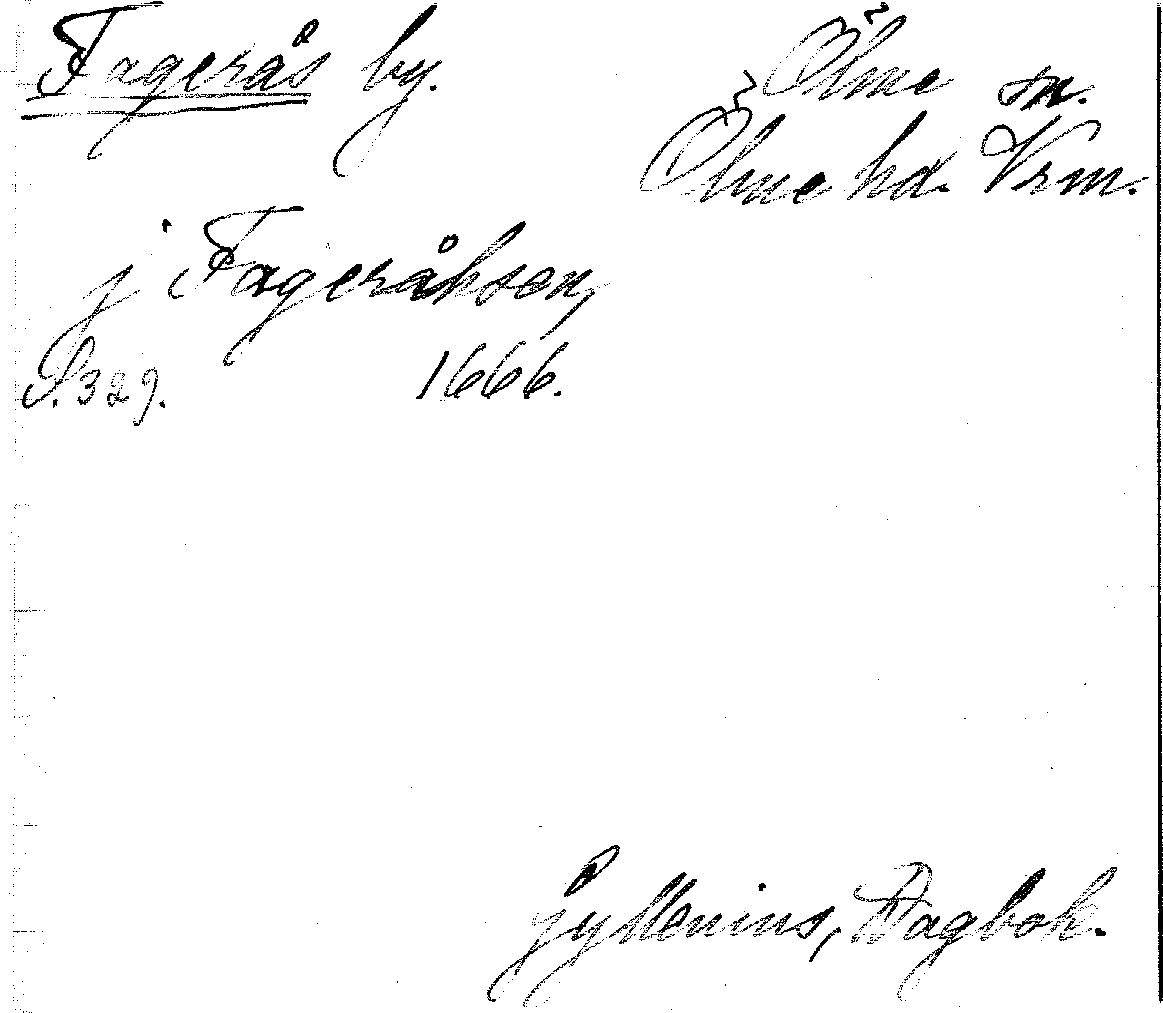 Fagerås by.
Ölme sn.
Ölme hd. Vrm.
j Fageråhsen,
S. 329. 1666.
Gyllenius, Dagbok.